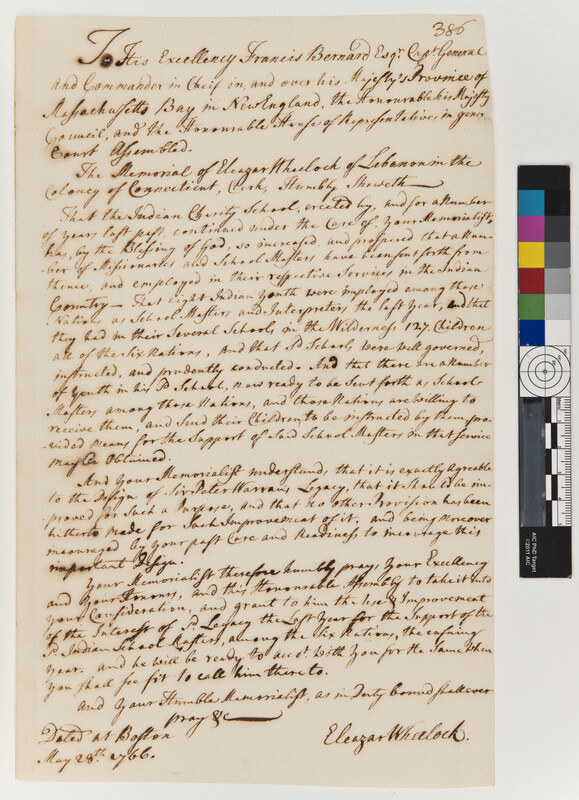 386
To His Excellency Francis Bernard Esqr. Capt. General
and Commander in Cheif in, and over his Majesty's Province of
Massachusetts Bay in New England, the Honourable his Majesty
Council, and the Honourable House of Representatives, in general
Court Assembled.
The Memorial of Eleazar Wheelock of Lebanon in the
Colony of Connecticut, Clerk, Humbly Sheweth
That the Indian Charity School, erected by, and for a Number
of years last past, continued under the Care of, Your Memorialist,
has, by the Blessing of God, so increased, and prospered that a Num-
ber of Missionaries and School Masters have been sent forth from
thence, and employed in their respective Services in the Indian
Country — That eight Indian Youth were imployed among those
Nations as School Masters and Interpreters the last Year, and that
they had in their Several Schools, in the Wilderness, 127. Children
all of the Six Nations, And that sd. Schools, were well governed,
instructed, and prudently conducted. And that there are a Number
of Youth in his sd. School, now ready to be Sent forth as School
Masters among those Nations, and those Nations are willing to
receive them, and Send their Children, to be instructed by them pro-
vided means for the Support of Said School Masters in that Service
may be Obtained.
And Your Memorialist understands, that it is exactly agreable
to the Design of Sir Peter Warrans Legacy, that it Should be im-
proved for Such a Purpose, and that no other Provision has been
hitherto made for Such Improvement of it, and being moreover
incouraged by Your past Care and Readiness to incourage this
important Design.
Your Memorialist therefore humbly prays, Your Excellency
and Your Honours, and this Honourable Assembly to take it into
Your Consideration, and grant to him the Use & Improvement
of the Interest of sd. Legacy the Last Year for the Support of the
sd. Indian School Masters, among the Six Nations, the ensuing
Year. and he will be ready to acct. with You for the Same when
You shall See fit to call him thereto.
And Your Humble Memorialist, as in Duty bound shall ever
pray &c
Dated at Boston
May 28.th 1766.
Eleazar Wheelock.
AIC PhD Target
©2011 AIC